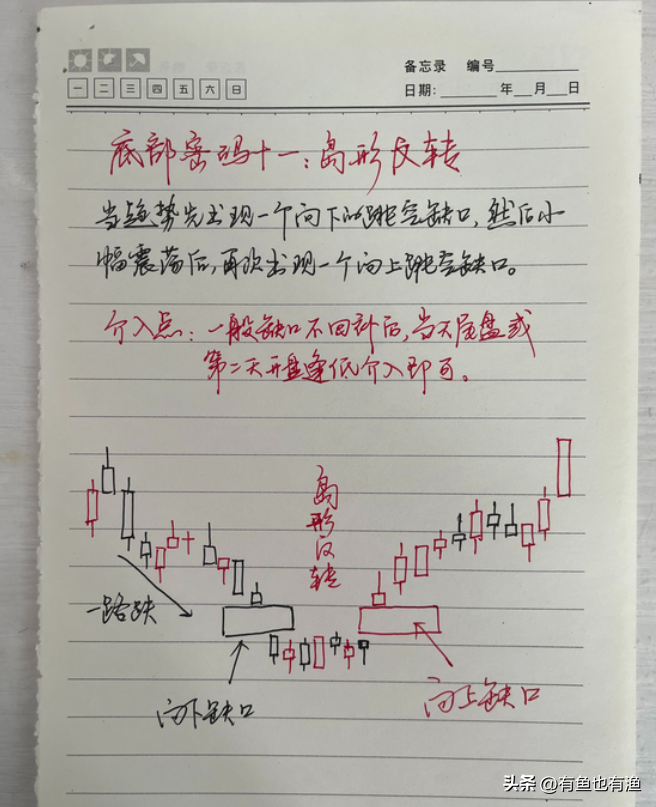 备忘录 编号
一 二 三 四 五 六 日
日期: 年 月 日
底部密码十一：岛形反转
当趋势先出现一个向下的跳空缺口，然后小
幅震荡后，再次出现一个向上跳空缺口。
介入点：一般缺口不回补后，当天尾盘或
第二天开盘逢低介入即可。
岛形反转
一路跌
向下缺口
向上缺口
头条 @有鱼也有渔